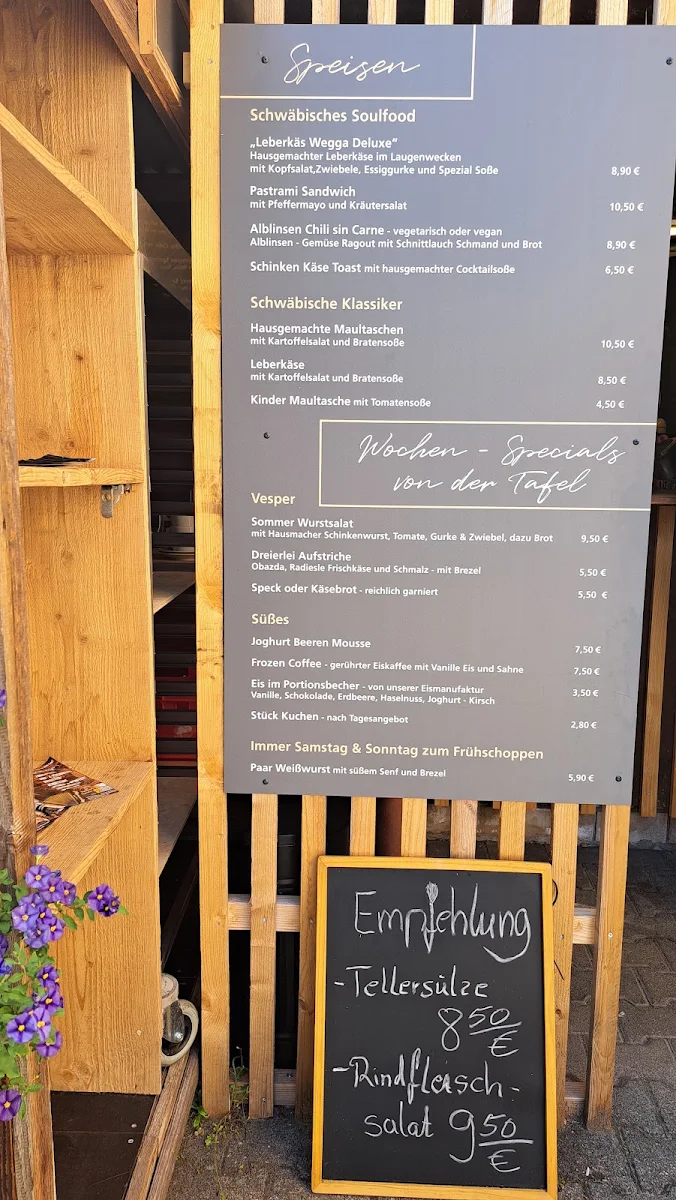 Speisen
Schwäbisches Soulfood
„Leberkäs Wegga Deluxe“
Hausgemachter Leberkäse im Laugenwecken
mit Kopfsalat,Zwiebele, Essiggurke und Spezial Soße 8,90 €
Pastrami Sandwich
mit Pfeffermayo und Kräutersalat 10,50 €
Alblinsen Chili sin Carne - vegetarisch oder vegan
Alblinsen - Gemüse Ragout mit Schnittlauch Schmand und Brot 8,90 €
Schinken Käse Toast mit hausgemachter Cocktailsoße 6,50 €
Schwäbische Klassiker
Hausgemachte Maultaschen
mit Kartoffelsalat und Bratensoße 10,50 €
Leberkäse
mit Kartoffelsalat und Bratensoße 8,50 €
Kinder Maultasche mit Tomatensoße 4,50 €
Wochen - Specials
von der Tafel
Vesper
Sommer Wurstsalat
mit Hausmacher Schinkenwurst, Tomate, Gurke & Zwiebel, dazu Brot 9,50 €
Dreierlei Aufstriche
Obazda, Radiesle Frischkäse und Schmalz - mit Brezel 5,50 €
Speck oder Käsebrot - reichlich garniert 5,50 €
Süßes
Joghurt Beeren Mousse 7,50 €
Frozen Coffee - gerührter Eiskaffee mit Vanille Eis und Sahne 7,50 €
Eis im Portionsbecher - von unserer Eismanufaktur
Vanille, Schokolade, Erdbeere, Haselnuss, Joghurt - Kirsch 3,50 €
Stück Kuchen - nach Tagesangebot 2,80 €
Immer Samstag & Sonntag zum Frühschoppen
Paar Weißwurst mit süßem Senf und Brezel 5,90 €
Empfehlung
- Tellersülze
8 50 €
- Rindfleisch-
salat 9 50 €